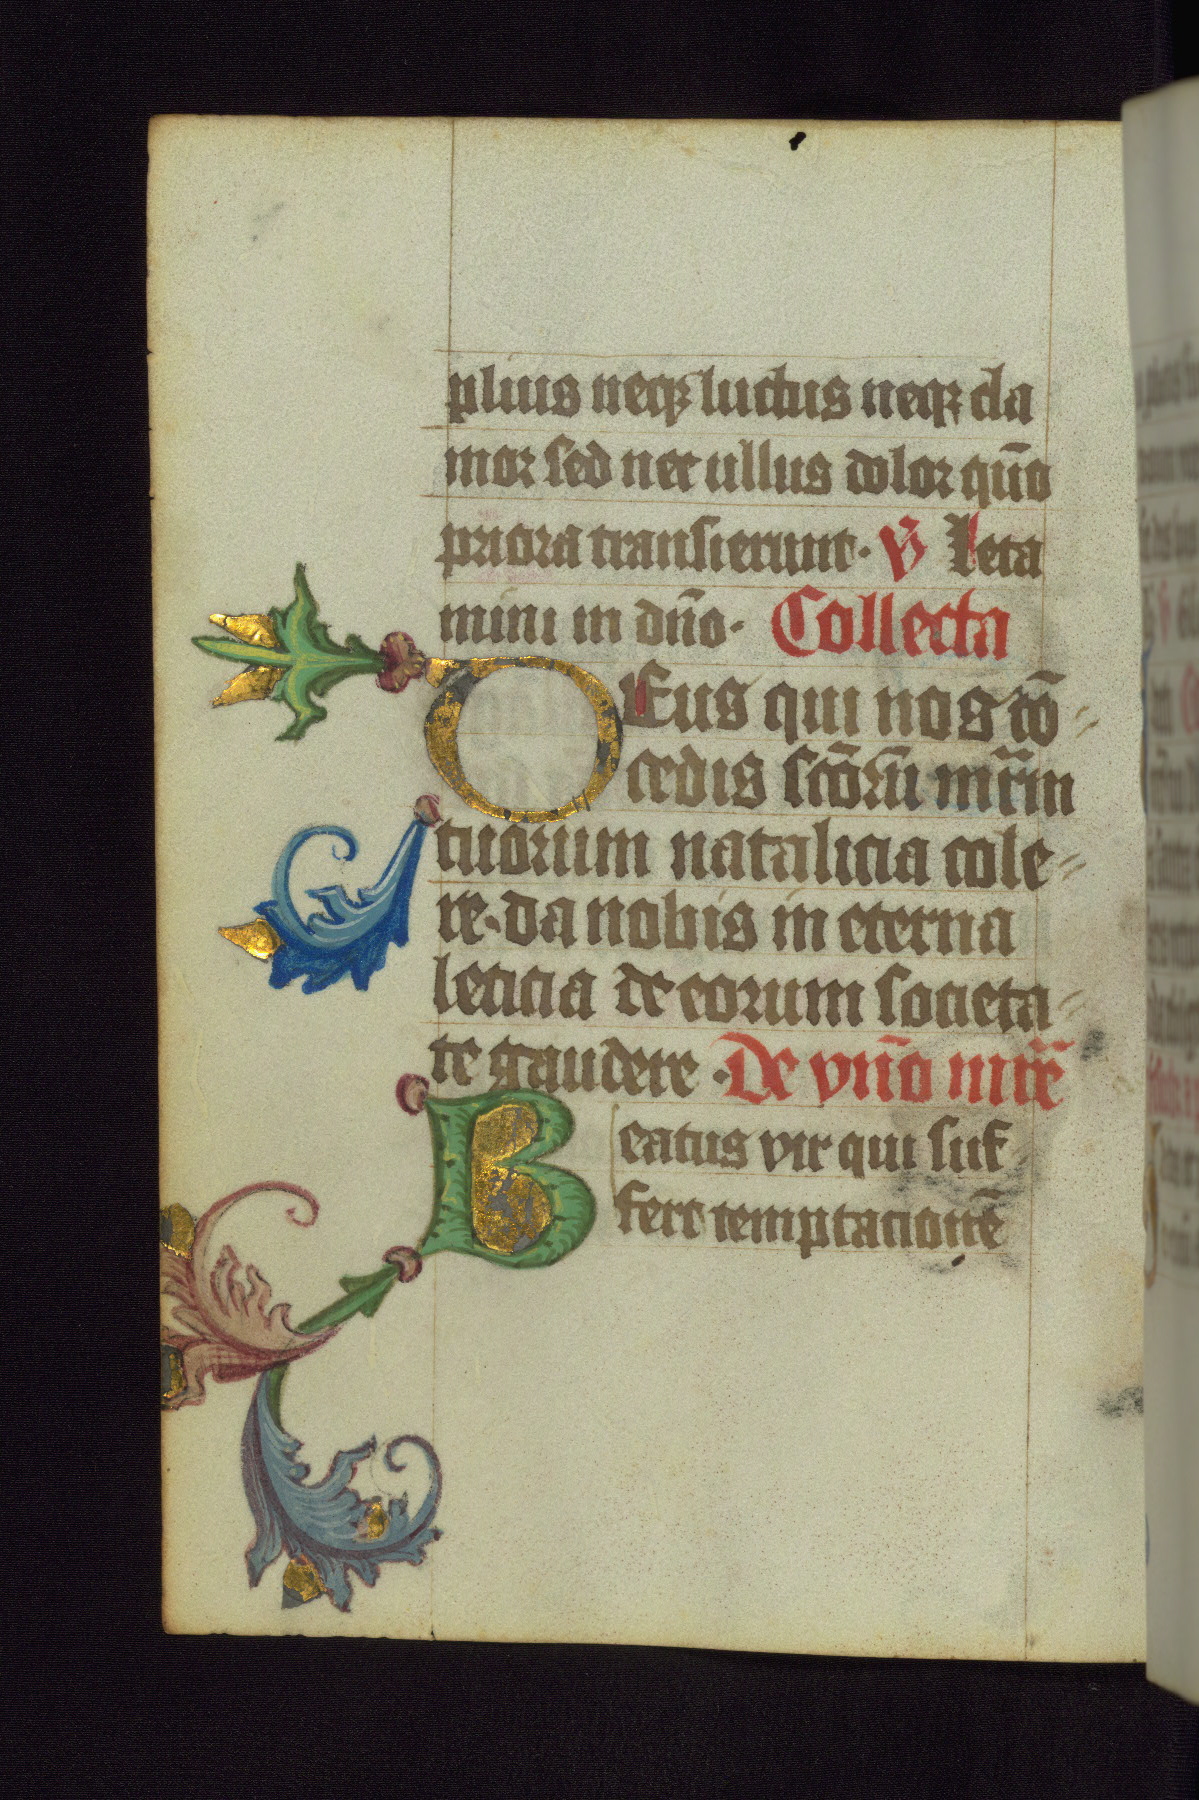 plius neqꝫ luctus neqꝫ cla
mor sed nec ullus dolor qm̄o
priora transierunt · v̄ Leta
mini in dn̄o · Collecta
DEus qui nos cō
cedis sctō𝔯ū mr̄m
tuorum natalicia cole
re · da nobis in eterna
leticia de eorum societa
te gaudere · De vn̄o mr̄e
Beatus vir qui suf
fert temptacionē